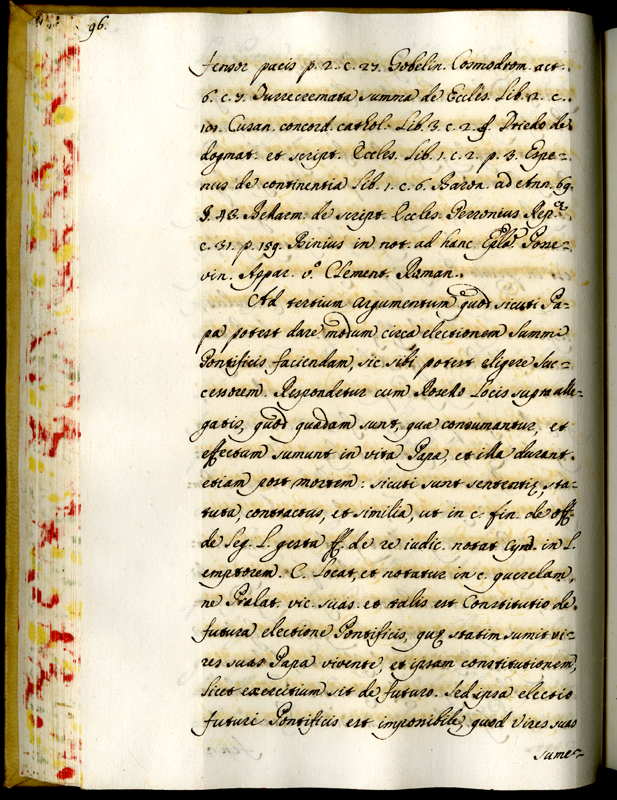 96.
fensor pacis p. 2. c. 27. Gobelin. Cosmodrom. act.
6. c. 7. Turrecremata summa de Eccles. Lib. 2. c.
101. Cusan. concord. cathol. Lib. 3. c. 2. Driedo de
dogmat. et script. Eccles. Lib. 1. c. 2. p. 3. Espe-
nus de continentia Lib. 1. c. 6. Baron. ad Ann. 69.
§. 43. Bellarm. de script. Eccles. Perronius Rep.
c. 31. p. 159. Binius in not. ad hanc Epla. Posse-
vin. Appar. vo. Clement. Roman.
Ad tertium argumentum quod sicuti Pa-
pa potest dare modum circa electionem summi
Pontificis faciendam, sic sibi potest eligere suc-
cessorem. Respondetur cum Rosello Locis supra alle-
gatis, quod quædam sunt, quæ consumantur, et
effectum sumunt in vita Papæ, et illa durant
etiam post mortem: sicuti sunt sententię, sta-
tuta, contractus, et similia, ut in c. fin. de off.
de Leg. L. gesta ff. de re iudic. notat Cyn. in L.
emptorem. C. Locat, et notatur in c. querelam,
ne Prælat. vic. suas. et talis est Constitutio de
futura electione Pontificis, quę statim sumit vi-
res suas Papa vivente, et ipsam constitutionem,
licet exercitium sit de futuro. Sed ipsa electio
futuri Pontificis est imponibile, quod vires suas
sume-